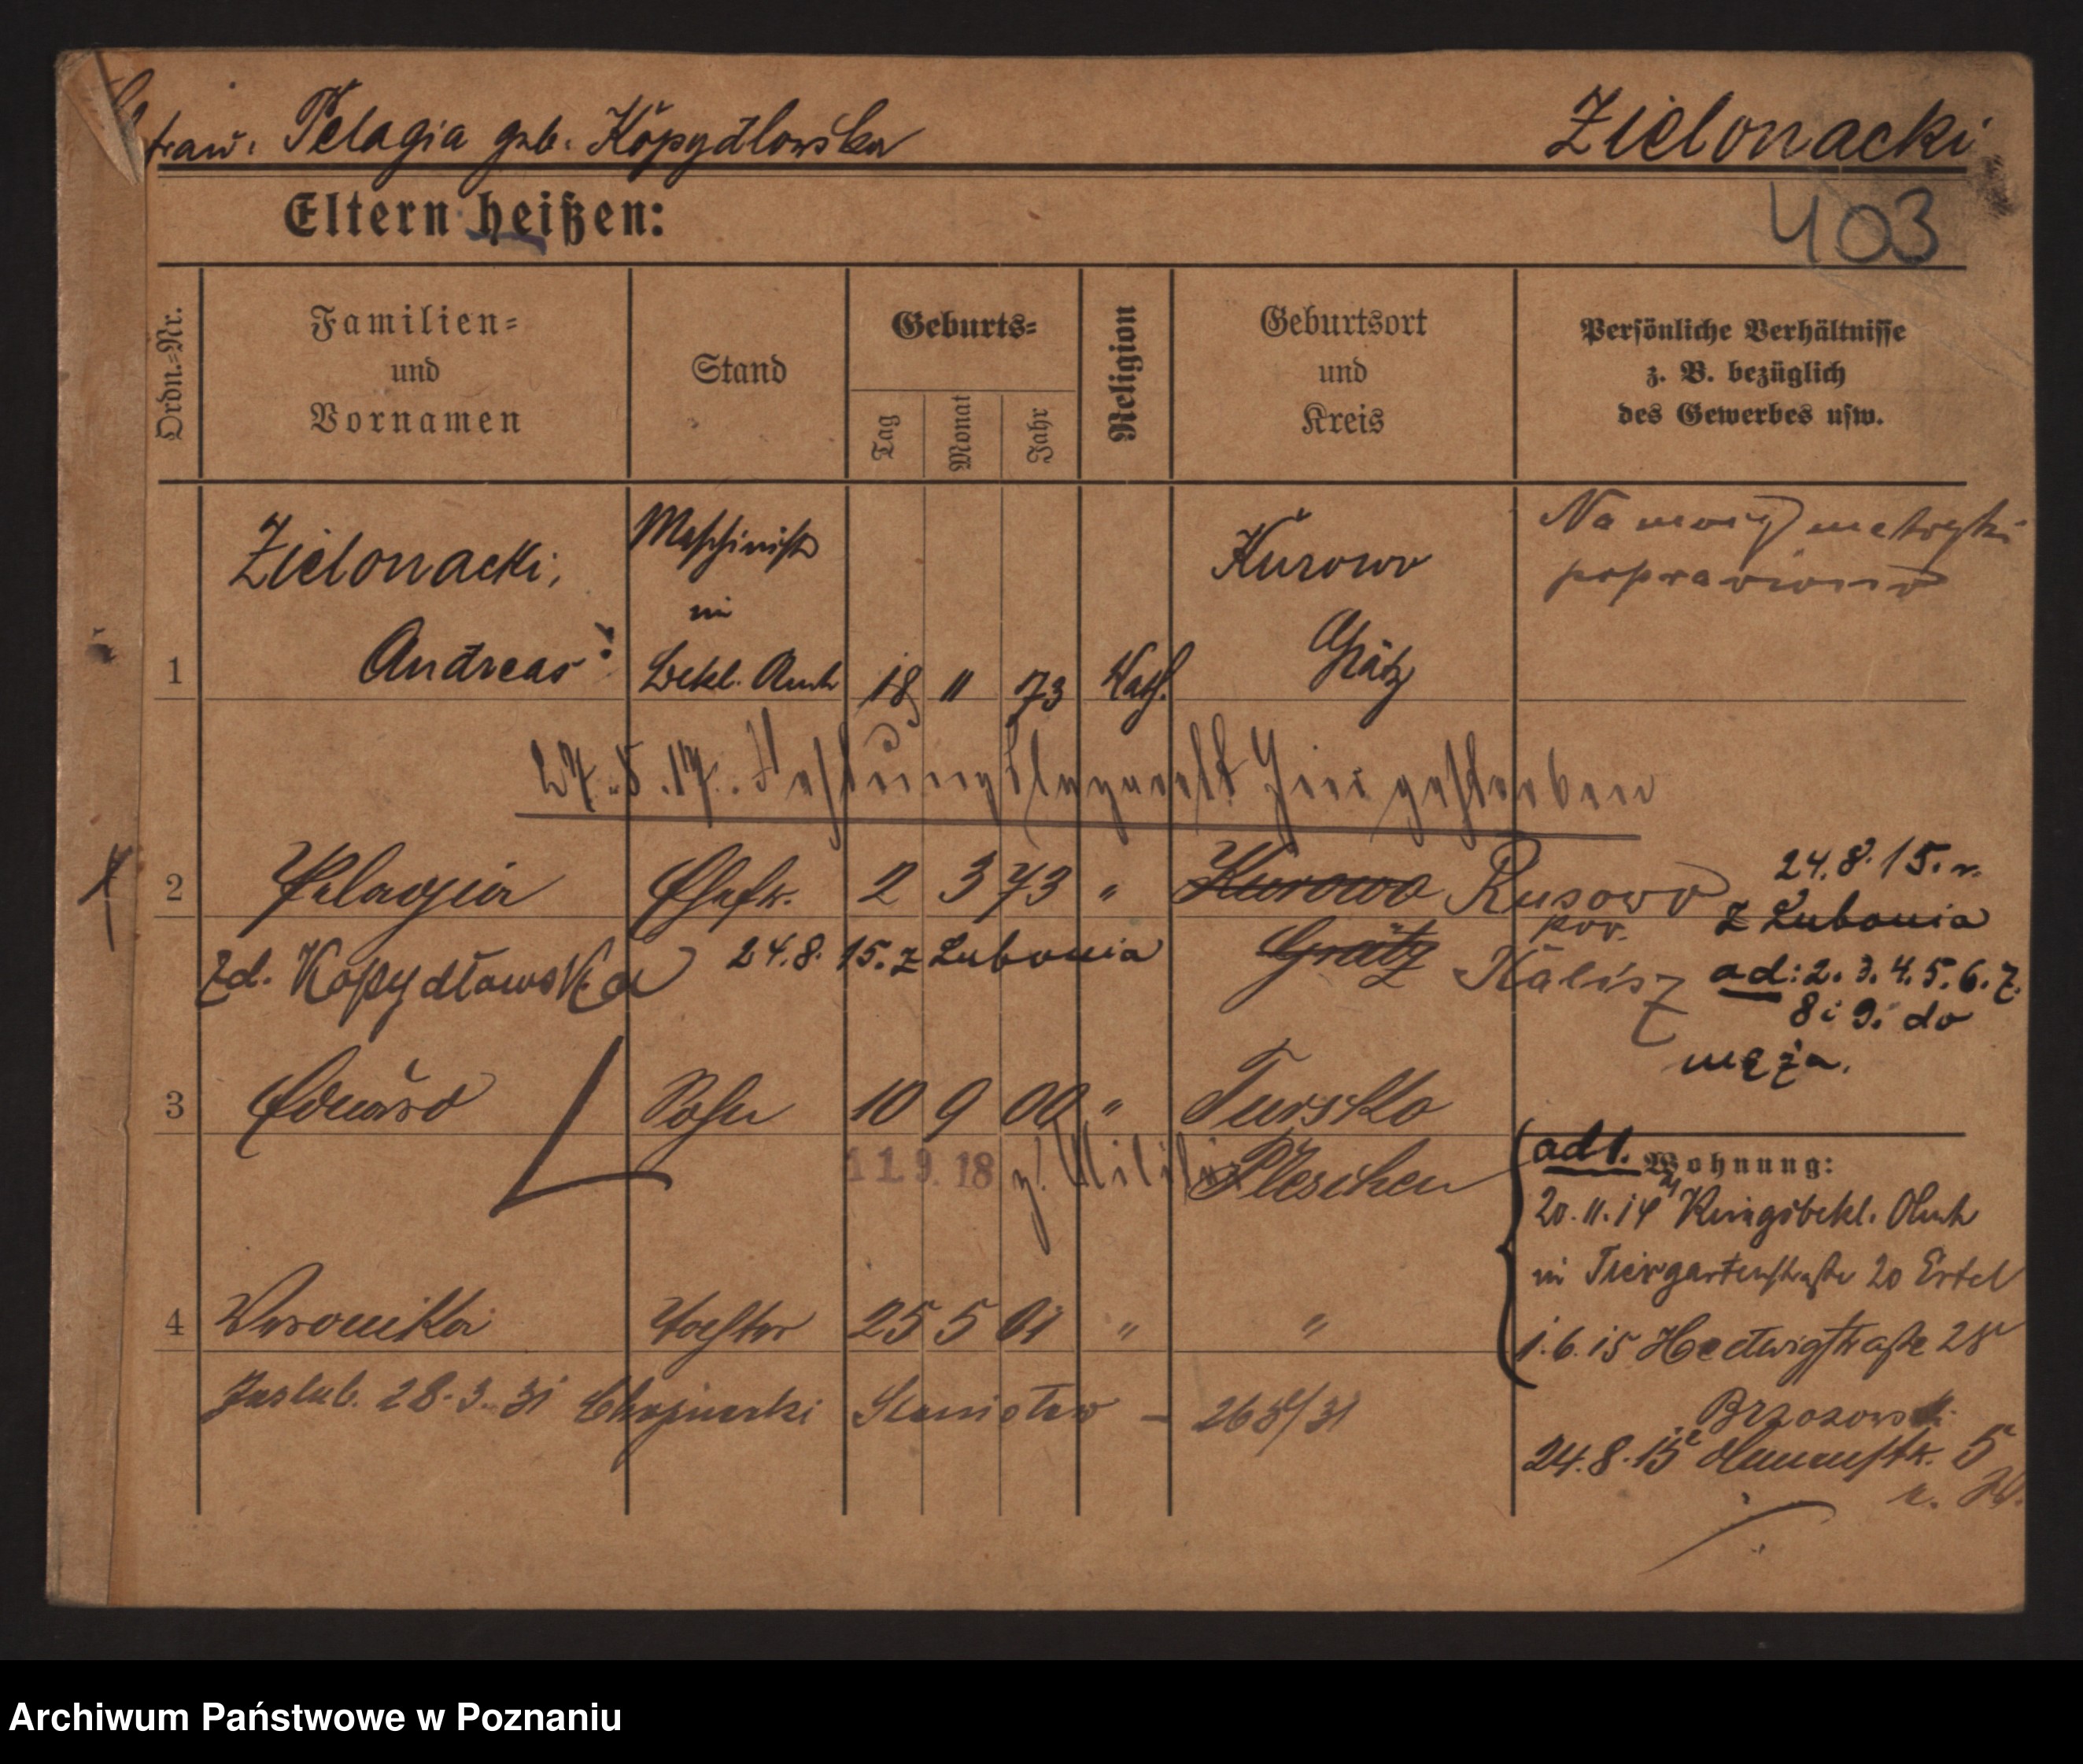 Pelagia geb. Kopydlowska
Zielonacki
Eltern heißen:
403
Ordn.=Nr.
Familien=
und
Vornamen
Stand
Geburts=
Tag
Monat
Jahr
Religion
Geburtsort
und
Kreis
Persönliche Verhältnisse
z. B. bezüglich
des Gewerbes usw.
1
Zielonacki,
Andreas
Maschinist
im
Bekl. Amt
18 11 73 Kath.
Kurowo
Grätz
Na metryki
poprawiono
27. 8. 17. Festungslazarett hier gestorben
2
Pelagia
Ehefr.
2 3 73 "
Kurowo Rusowo
Grätz pow.
Kalisz
zd. Kopydławska
24.8.15. z Lubonia
24.8.15.
z Lubonia
ad: 2. 3. 4. 5. 6. 7.
8 i 9. do
męża.
3
Eduard
Sohn
10 9 00 "
Tursko
Pleschen
11. 9. 18 z. Militär
4
Veronika
Tochter
25 5 01 " "
zaślub. 28.3.31 Chojnacki Stanisław – /31
ad 1. Wohnung:
20.11.14 Kriegsbekl. Amt
in Tiergartenstraße 20 Ertel
1.6.15 Hedwigstraße 28
Brzozowski
24.8.15 5
Archiwum Państwowe w Poznaniu